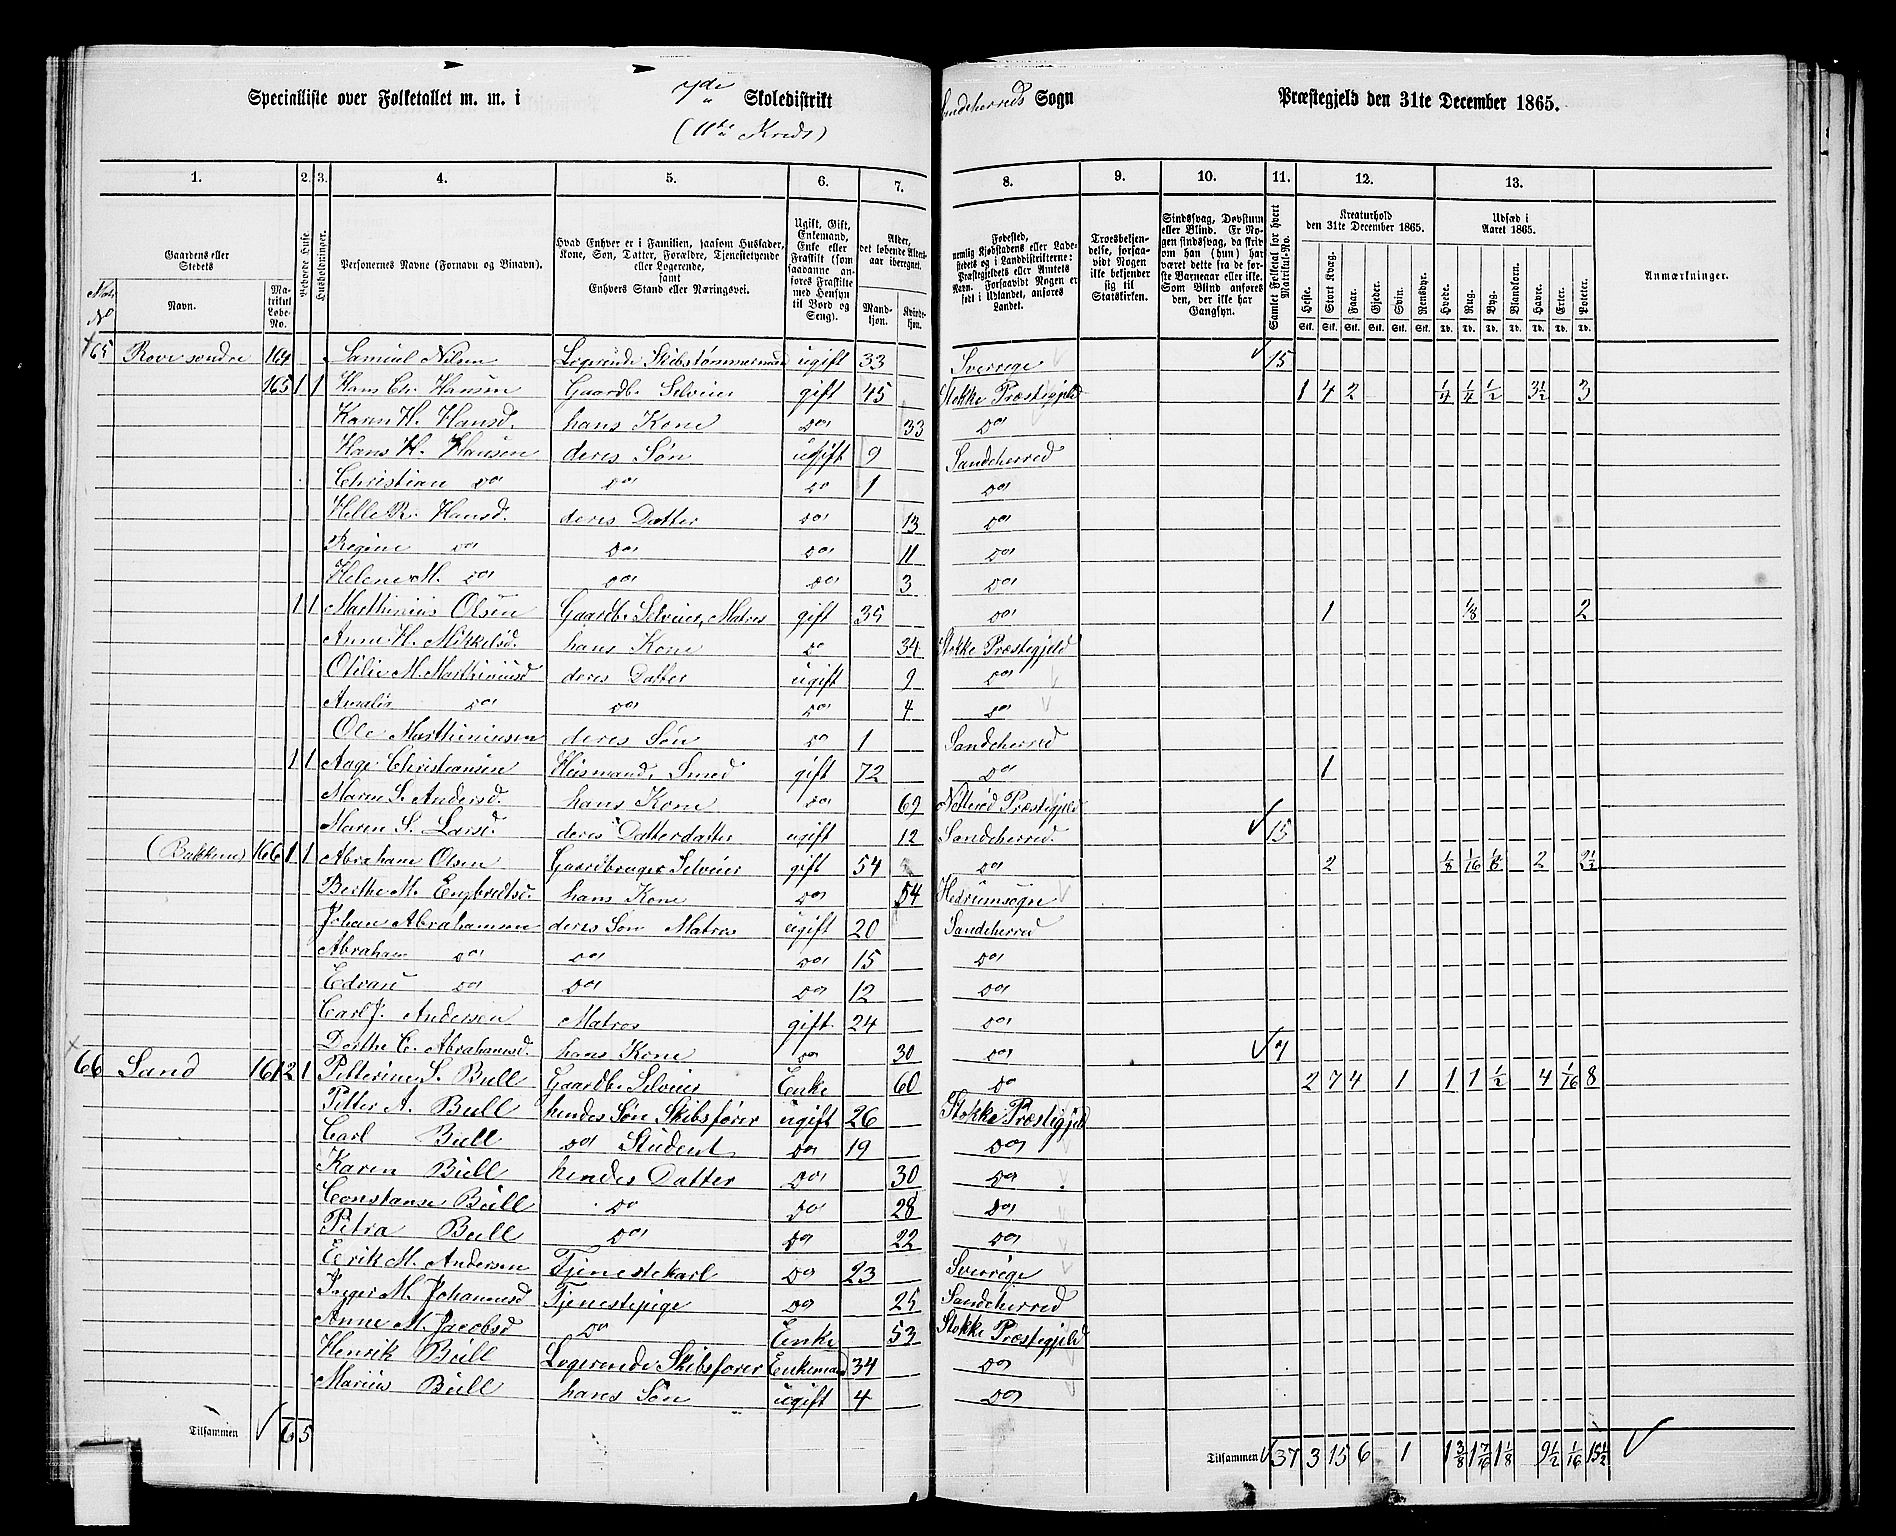 Specialliste over Folketallet m. m. i 7de Skoledistrikt Sandeherreds Sogn Præstegjeld den 31te December 1865.
(11te Kreds)
1. 2. 3. 4. 5. 6. 7. 8. 9. 10. 11. 12. 13.
Gaardens eller Stedets
Navn. Matrikul Løbe-No.
Beboede Huse. Husholdninger.
Personernes Navne (Fornavn og Binavn).
Hvad Enhver er i Familien, saasom Husfader, Kone, Søn, Datter, Forældre, Tjenestetyende eller Logerende, samt Enhvers Stand eller Næringsvei.
Ugift, Gift, Enkemand, Enke eller Fraskilt (som saadanne anføres Fraskilte med Hensyn til Bord og Seng).
Alder, det løbende Alders-aar iberegnet.
Mandkjøn. Kvindekjøn.
Fødested, nemlig Kjøbstadens eller Ladestedets og i Landdistrikterne: Præstegjeldets eller Amtets Navn. Forsaavidt Nogen er født i Udlandet, anføres Landet.
Troesbekjendelse, forsaavidt Nogen ikke bekjender sig til Statskirken.
Sindssvag, Døvstum eller Blind. Er Nogen sindssvag, da skriv om han (hun) har været dette fra de første Barneaar eller ikke. Som Blind anføres den, der ikke har Gangsyn.
Samlet Folketal for hvert Matrikul-No.
Kreaturhold den 31te December 1865.
Heste. Stort Kvæg. Faar. Gjeder. Svin. Rensdyr.
Udsæd i Aaret 1865.
Hvede. Rug. Byg. Blandkorn. Havre. Erter. Poteter.
Anmærkninger.
65 Rove søndre 164 Samuel Nilsen Logerende Skibstømmermand ugift 33 Sverrige 15
165 1 1 Hans Chr. Hansen Gaardb. Selveier gift 45 Stokke Præstegjeld 1 4 2 1/4 1/4 1/2 3 1/2 3
Karen H. Hansd. hans Kone do 33 do
Hans H. Hansen deres Søn ugift 9 Sandeherred
Christian do do do 1 do
Helle R. Hansd. deres Datter do 13 do
Regine do do do 11 do
Helene M. do do do 3 do
1 1 Marthinius Olsen Gaardb. Selveier, Matros gift 35 do 1 1/8 2
Anne H. Mikkelsd. hans Kone do 34 Stokke Præstegjeld
Otilie M. Marthiniusd deres Datter ugift 9 do
Amalie do do do 4 do
Ole Marthiniusen deres Søn do 1 Sandeherred
1 1 Aage Christiansen Huusmand, Smed gift 72 do 1
Maren S. Andersd. hans Kone do 69 Nøtterød Præstegjeld
Maren S. Larsd. deres Datterdatter ugift 12 Sandeherred 15
(Bakken) 166 1 1 Abraham Olsen Gaardbruger Selveier gift 54 do 2 1/8 1/16 1/8 2 2 1/2
Berthe M. Engbretsd. hans Kone do 54 Hedrumsogn
Johan Abrahamsen deres Søn Matros ugift 20 Sandeherred
Abraham do do do 15 do
Edvau do do do 12 do
Carl J. Andersen Matros gift 24 do
Dorthe C. Abrahamsd. hans Kone do 30 do 7
66 Sand 161 2 1 Petterine S. Bull Gaardb. Selveier Enke 60 do 2 7 4 1 1 1 1/2 4 1/16 8
Petter A. Bull hendes Søn Skibsfører ugift 26 Stokke Præstegjeld
Carl Bull do Student do 19 do
Karen Bull hendes Datter do 30 do
Constanse Bull do do 28 do
Petra Bull do do 22 do
Eerik M. Andersen Tjenestekarl do 23 Sverrige
Inger M. Johannesd Tjenestepige do 25 Sandeherred
Anne M. Jacobsd do Enke 53 Stokke Præstegjeld
Henrik Bull Logerende Skibsfører Enkemand 34 do
Marius Bull hans Søn ugift 4 do
Tilsammen 6 5 Tilsammen 37 3 15 6 1 1 3/8 1 7/16 1 1/8 9 1/2 1/16 15 1/2